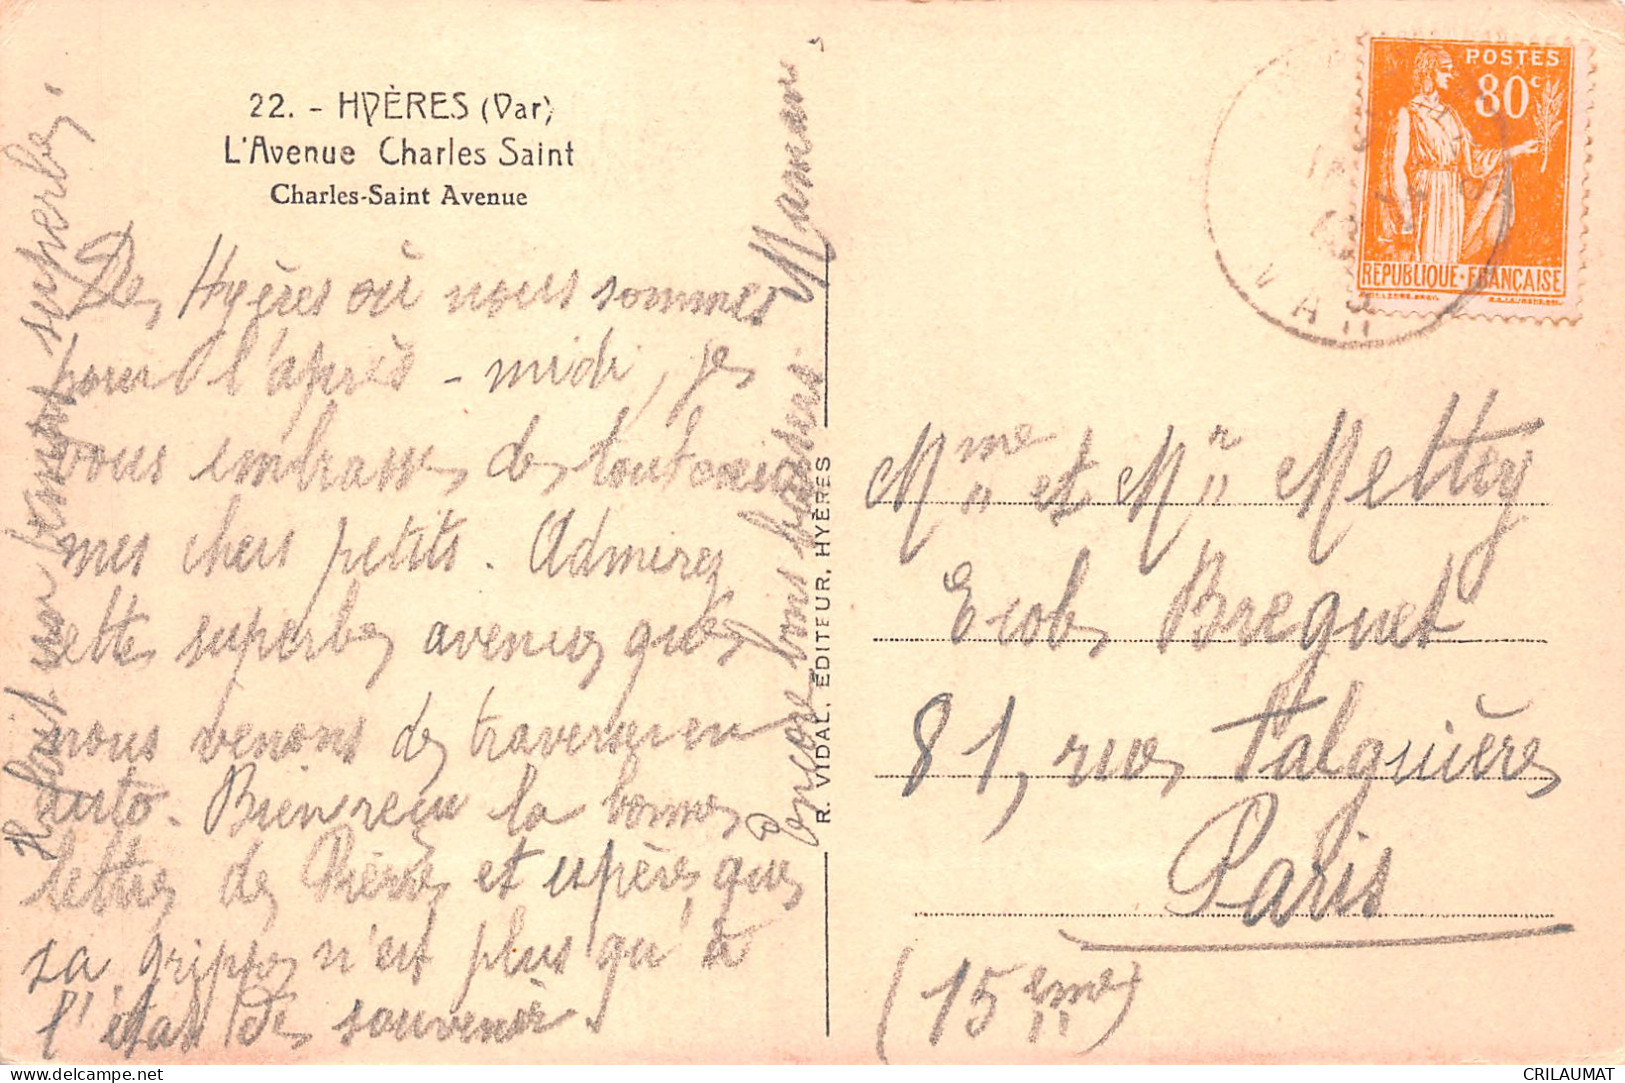 22. - HYÈRES (Var)
L'Avenue Charles Saint
Charles-Saint Avenue
De Hyères où nous sommes
pour l'après-midi, je
vous embrasse de tout cœur
mes chers petits. Admirez
cette superbe avenue que
nous venons de traverser en
auto. Bien reçu la bonne
lettre de Pierre et espère que
sa grippe n'est plus qu'à
l'état de souvenir.
Il fait un temps superbe.
Encore bons baisers Maman
R. VIDAL, ÉDITEUR, HYÈRES
POSTES
80c
RÉPUBLIQUE·FRANÇAISE
VAR
Mme et Mr Mettey
Ecole Breguet
81, rue Falguière
Paris
(15eme)
CRILAUMAT